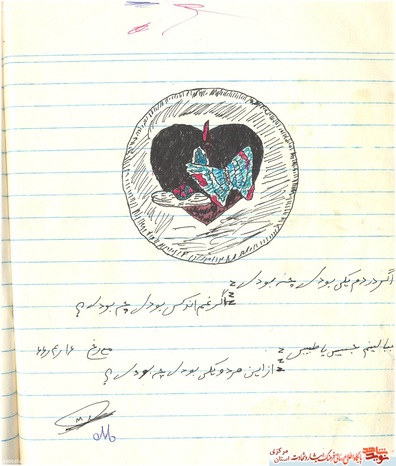 اگر دردم یکی بودی چه بودی
اگر غم اندکی بودی چه بودی؟
ببالینم حبیبی یا طبیبی
از این هر دو یکی بودی چه بودی؟
مورخ
نوید شاهد
پایگاه اطلاع رسانی فرهنگ ایثار و شهادت استان مرکزی